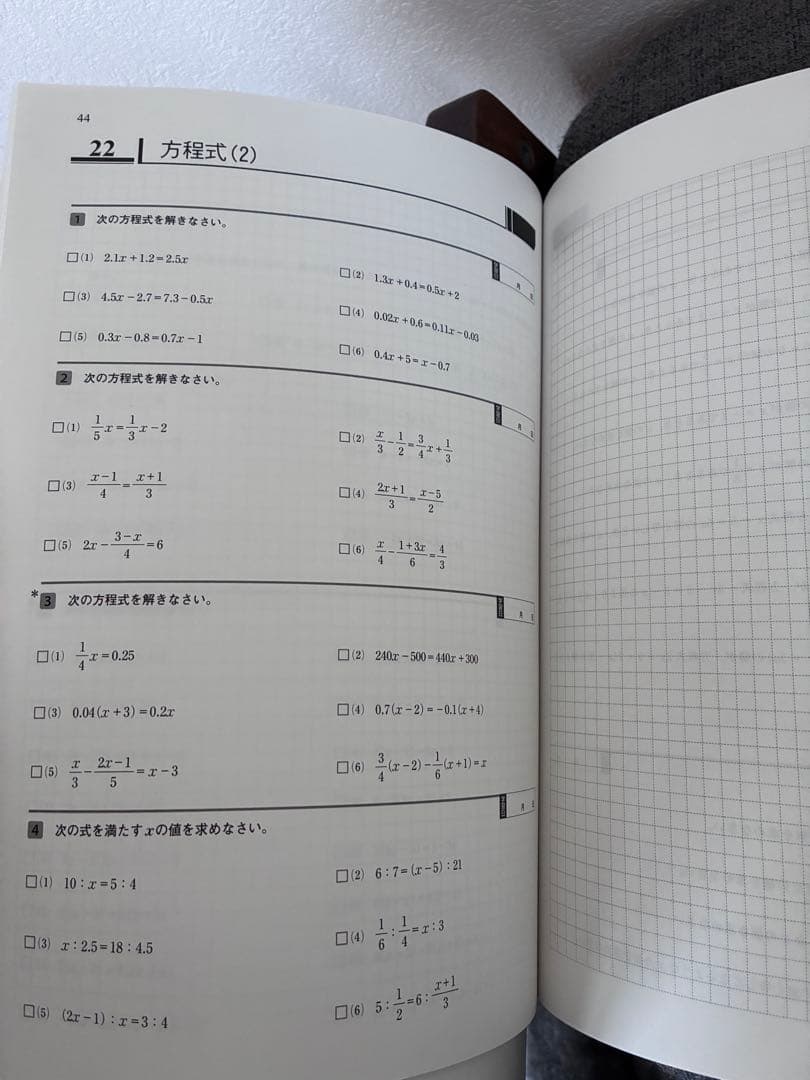 44
22 方程式(2)
1 次の方程式を解きなさい。
月 日
□(1) 2.1x+1.2=2.5x
□(2) 1.3x+0.4=0.5x+2
□(3) 4.5x-2.7=7.3-0.5x
□(4) 0.02x+0.6=0.11x-0.03
□(5) 0.3x-0.8=0.7x-1
□(6) 0.4x+5=x-0.7
2 次の方程式を解きなさい。
月 日
□(1) 1/5 x=1/3 x-2
□(2) x/3-1/2=3/4 x+1/3
□(3) (x-1)/4=(x+1)/3
□(4) (2x+1)/3=(x-5)/2
□(5) 2x-(3-x)/4=6
□(6) x/4-(1+3x)/6=4/3
*3 次の方程式を解きなさい。
月 日
□(1) 1/4 x=0.25
□(2) 240x-500=440x+300
□(3) 0.04(x+3)=0.2x
□(4) 0.7(x-2)=-0.1(x+4)
□(5) x/3-(2x-1)/5=x-3
□(6) 3/4(x-2)-1/6(x+1)=x
4 次の式を満たすxの値を求めなさい。
月 日
□(1) 10:x=5:4
□(2) 6:7=(x-5):21
□(3) x:2.5=18:4.5
□(4) 1/6:1/4=x:3
□(5) (2x-1):x=3:4
□(6) 5:1/2=6:(x+1)/3